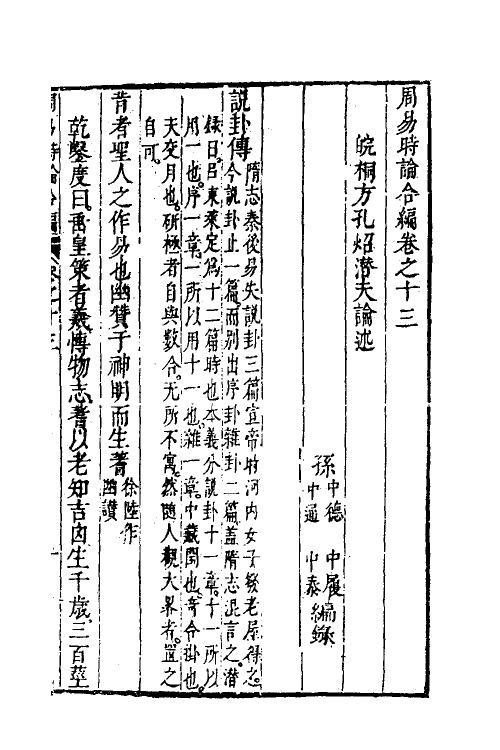 周易時論合編卷之十三
皖桐方孔炤潛夫論述
孫中德 中履
中通 中泰編錄
說卦傳
隋志秦後易失說卦三篇宣帝時河內女子發老屋得之
今說卦止一篇而別出序卦雜卦二篇蓋隋志混言之潛
錄曰呂東萊定為十二篇時也本義分說卦十一章十一所以
用一也序一章一所以用十一也雜一章中藏閏也奇合掛也
天交月也研極者自與數合无所不寓然隨人觀大畧者置之
自可
昔者聖人之作易也幽贊于神明而生蓍
徐陸作
幽讚
乾鑿度曰垂皇策者羲愽物志蓍以老知吉凶生千歲三百莖
周易時論合編 卷之十三